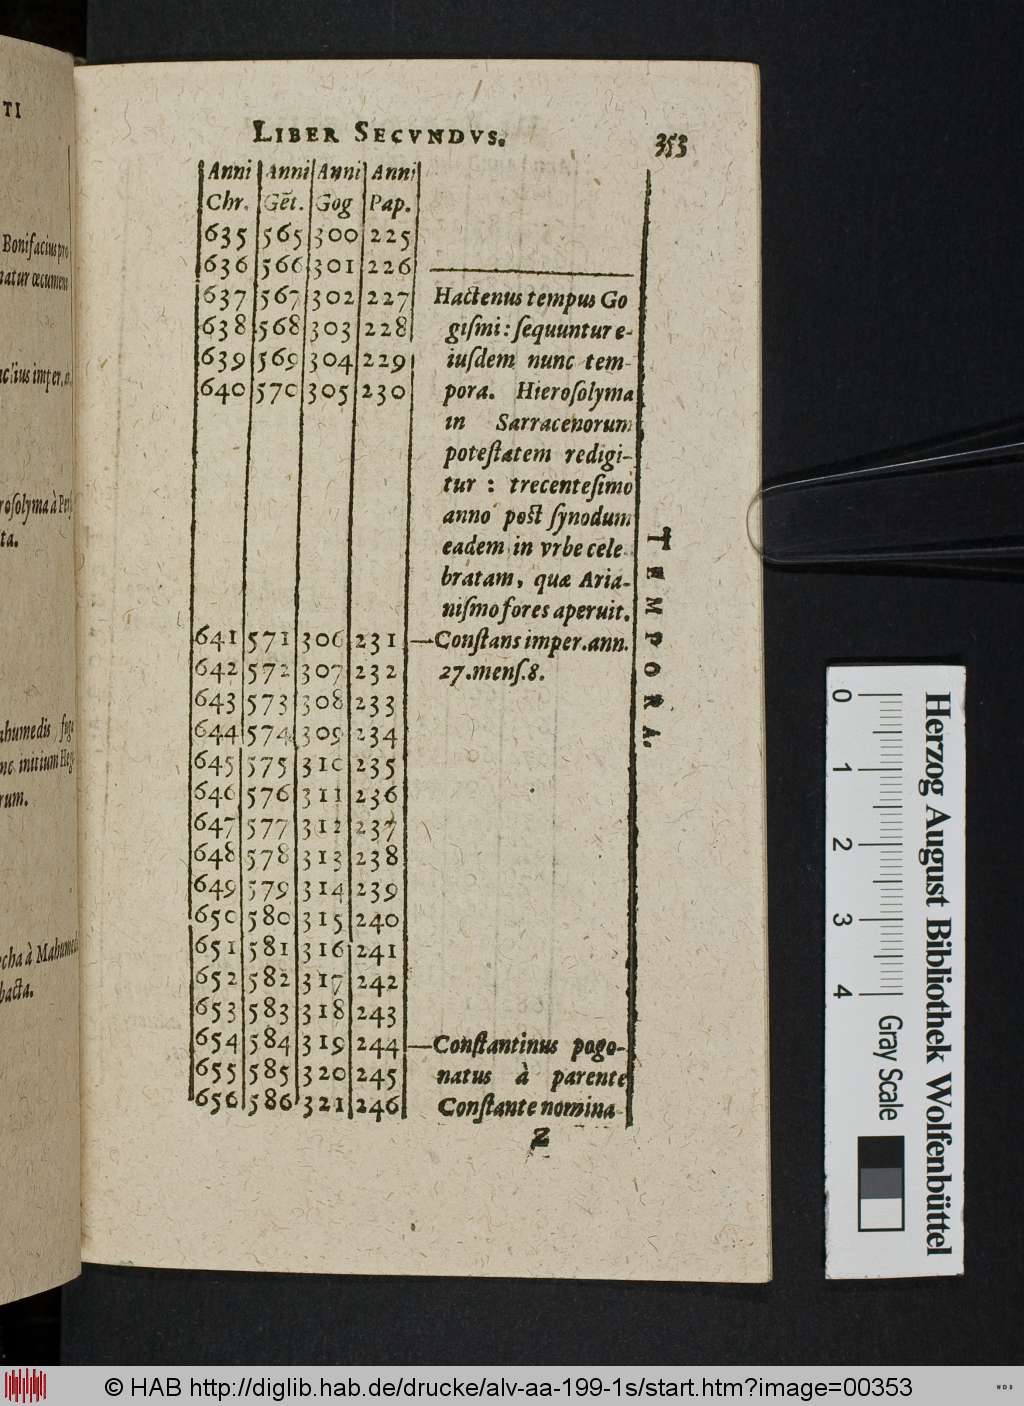 TI
Bonifacius pro
natur œcumeni
clius imper. a.
rosolyma à Per
ta.
ahumedis fuga
nc initium Heg
rum.
cha à Mahumed
bacta.
LIBER SECVNDVS. 353
Anni Anni Anni Anni
Chr. Gẽt. Gog Pap.
635 565 300 225
636 566 301 226
637 567 302 227 Hactenus tempus Go
638 568 303 228 gismi: sequuntur e-
639 569 304 229 iusdem nunc tem-
640 570 305 230 pora. Hierosolyma
in Sarracenorum
potestatem redigi-
tur : trecentesimo
anno post synodum
eadem in vrbe cele
bratam, quæ Aria-
nismo fores aperuit.
641 571 306 231 —Constans imper. ann.
642 572 307 232 27. mens. 8.
643 573 308 233
644 574 309 234
645 575 310 235
646 576 311 236
647 577 312 237
648 578 313 238
649 579 314 239
650 580 315 240
651 581 316 241
652 582 317 242
653 583 318 243
654 584 319 244 —Constantinus pogo-
655 585 320 245 natus à parente
656 586 321 246 Constante nomina
Z
TEMPORA.
0 1 2 3 4
Gray Scale
Herzog August Bibliothek Wolfenbüttel
© HAB http://diglib.hab.de/drucke/alv-aa-199-1s/start.htm?image=00353